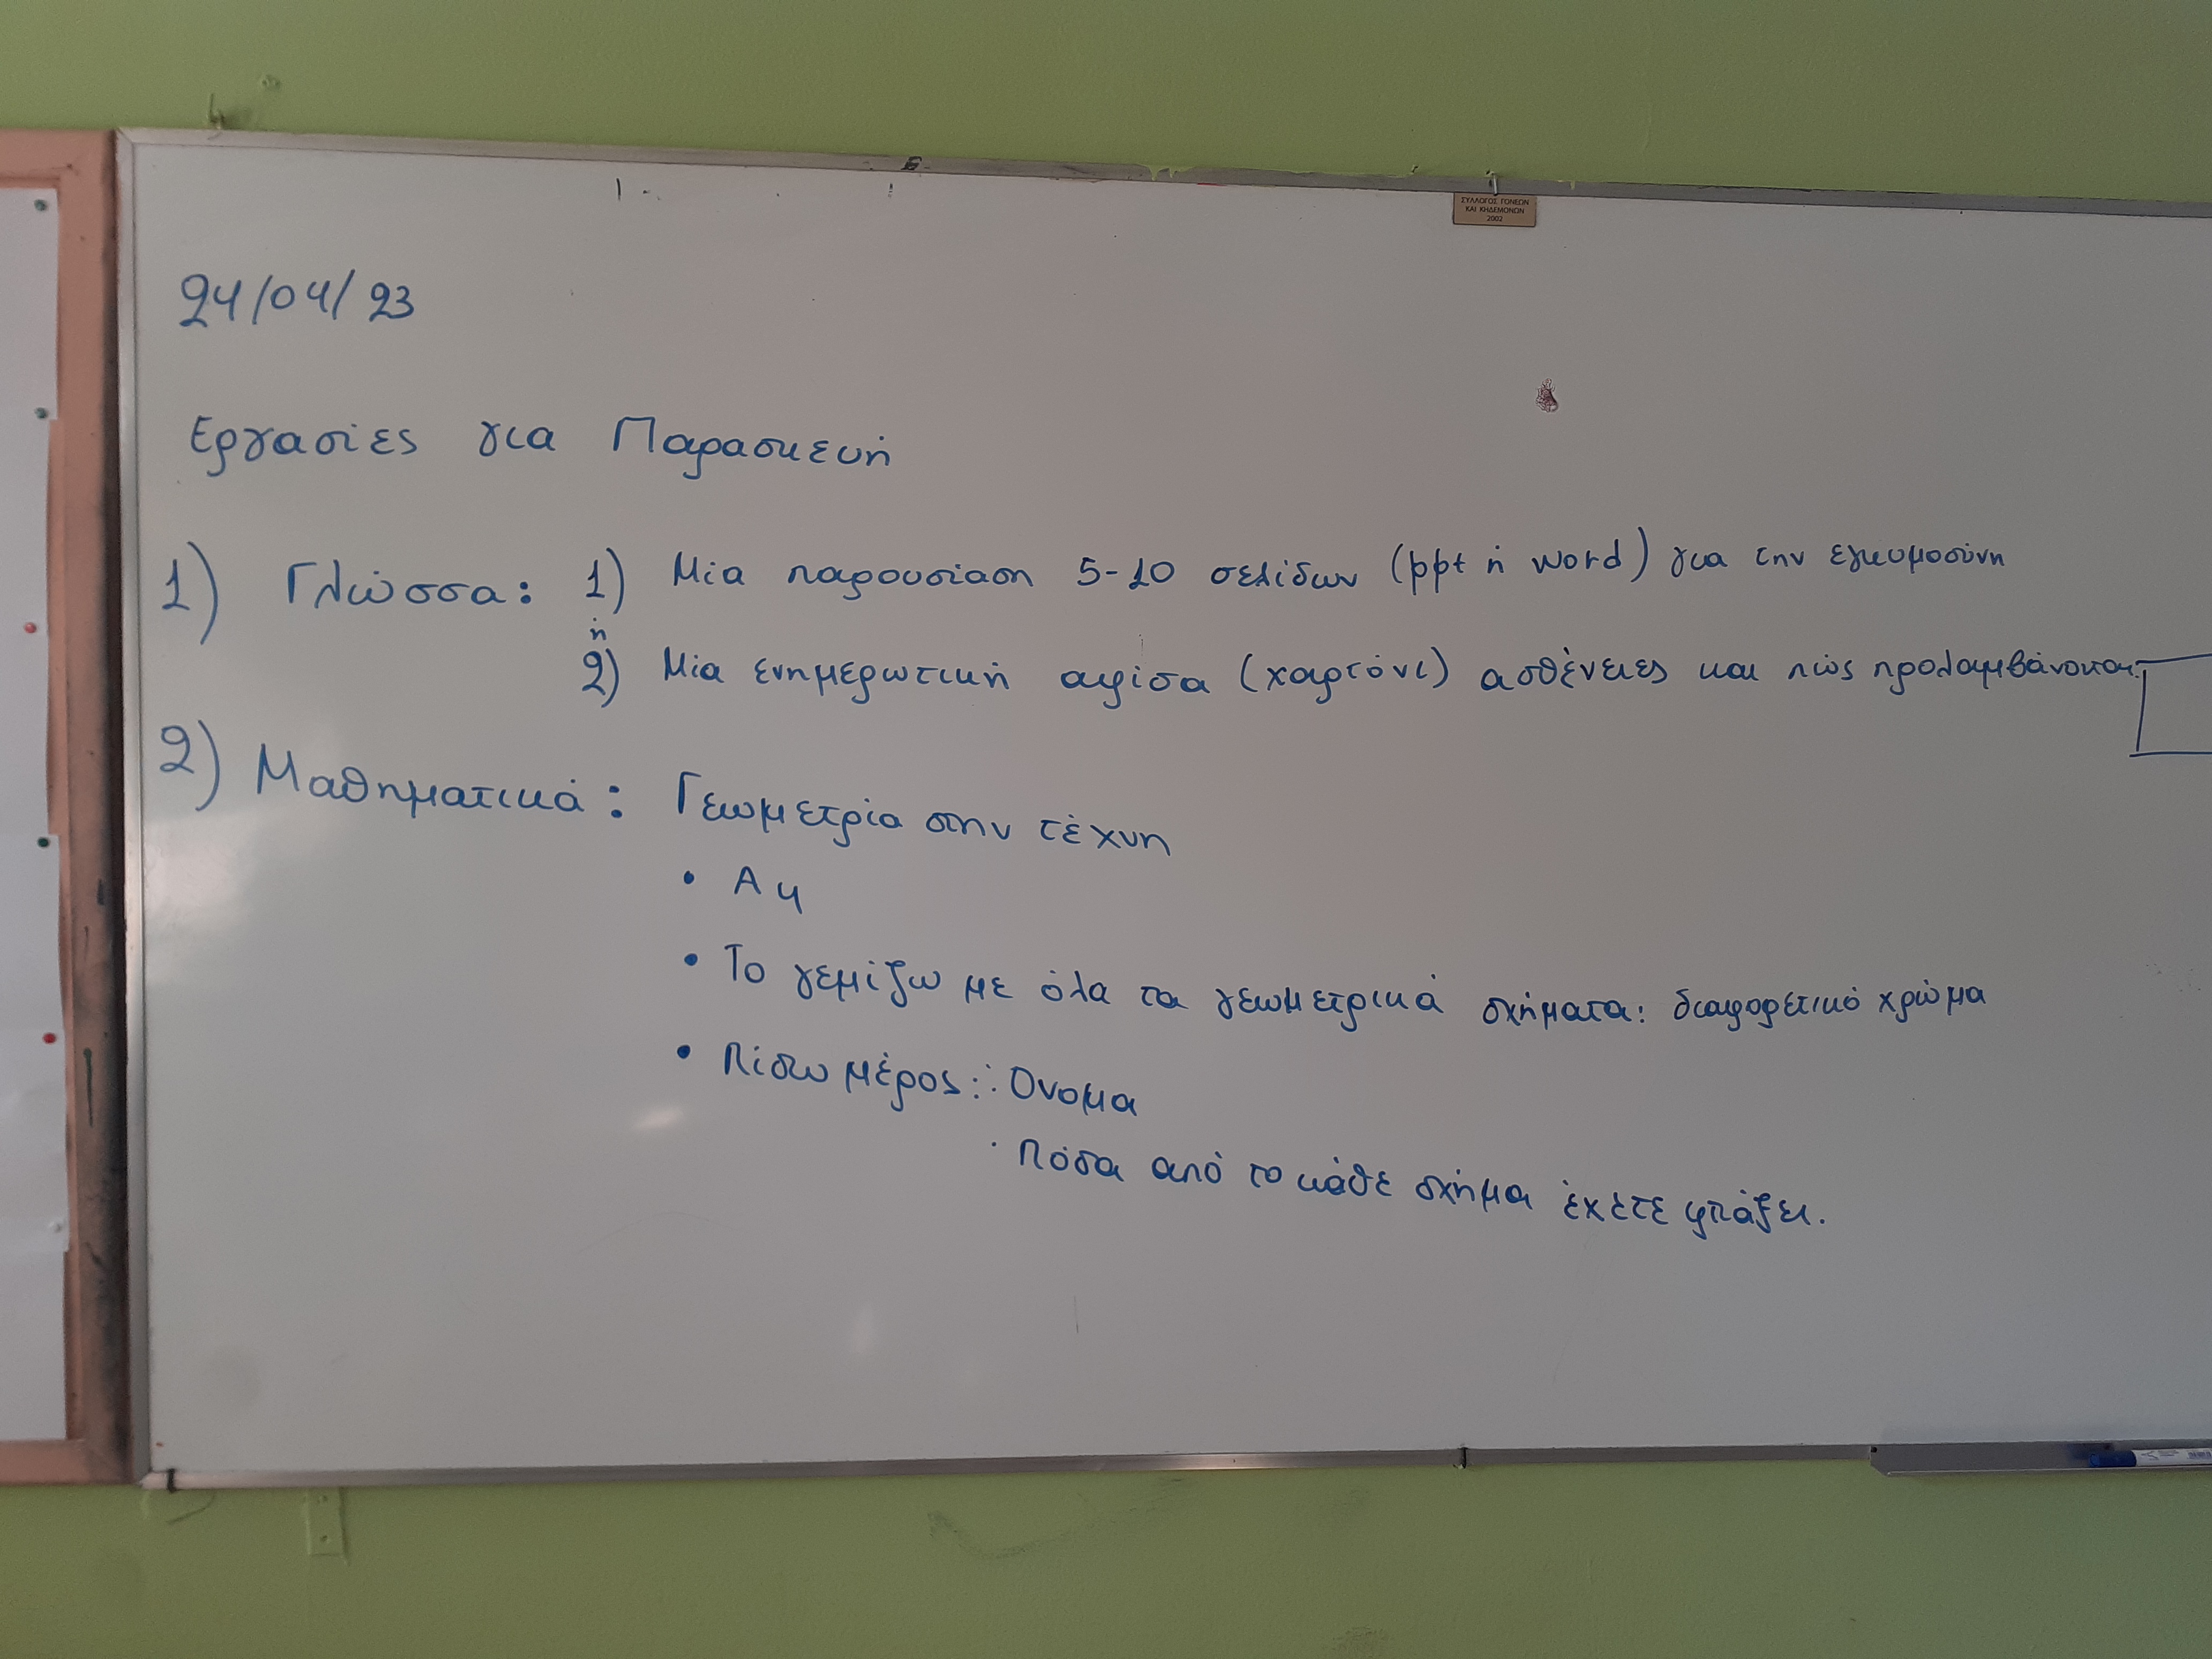 ΣΥΛΛΟΓΟΣ ΓΟΝΕΩΝ
ΚΑΙ ΚΗΔΕΜΟΝΩΝ
2002
24/04/23
Εργασίες για Παρασκευή
1) Γλώσσα: 1) Μία παρουσίαση 5-10 σελίδων (ppt ή word) για την εγκυμοσύνη
ή
2) Μία ενημερωτική αφίσα (χαρτόνι) ασθένειες και πώς προλαμβάνονται.
2) Μαθηματικά: Γεωμετρία στην τέχνη
• Α4
• Το γεμίζω με όλα τα γεωμετρικά σχήματα: διαφορετικό χρώμα
• Πίσω μέρος: · Όνομα
· Πόσα από το κάθε σχήμα έχετε φτιάξει.